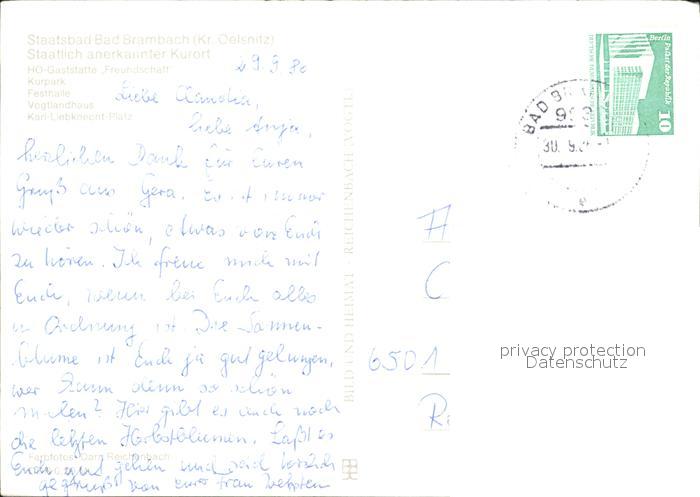 Staatsbad Bad Brambach (Kr. Oelsnitz)
Staatlich anerkannter Kurort
HO-Gaststätte „Freundschaft"
Kurpark
Festhalle
Vogtlandhaus
Karl-Liebknecht-Platz
29.9.80
Liebe Claudia,
liebe Anja,
herzlichen Dank für Euren
Gruß aus Gera. Es ist immer
wieder schön, etwas von Euch
zu hören. Ich freue mich mit
Euch, wenn bei Euch alles
in Ordnung ist. Die Sonnen-
blume ist Euch ja gut gelungen,
wer kann denn so schön
malen? Hier gibt es auch noch
die letzten Herbstblumen. Laßt es
Euch gut gehen und seid herzlich
gegrüßt von eurer Frau
Farbfotos: Darr, Reichenbach
BILD UND HEIMAT REICHENBACH VOGTL
BAD BRA
30. 9. 8
Berlin
Palast der Republik
10
6501
privacy protection
Datenschutz